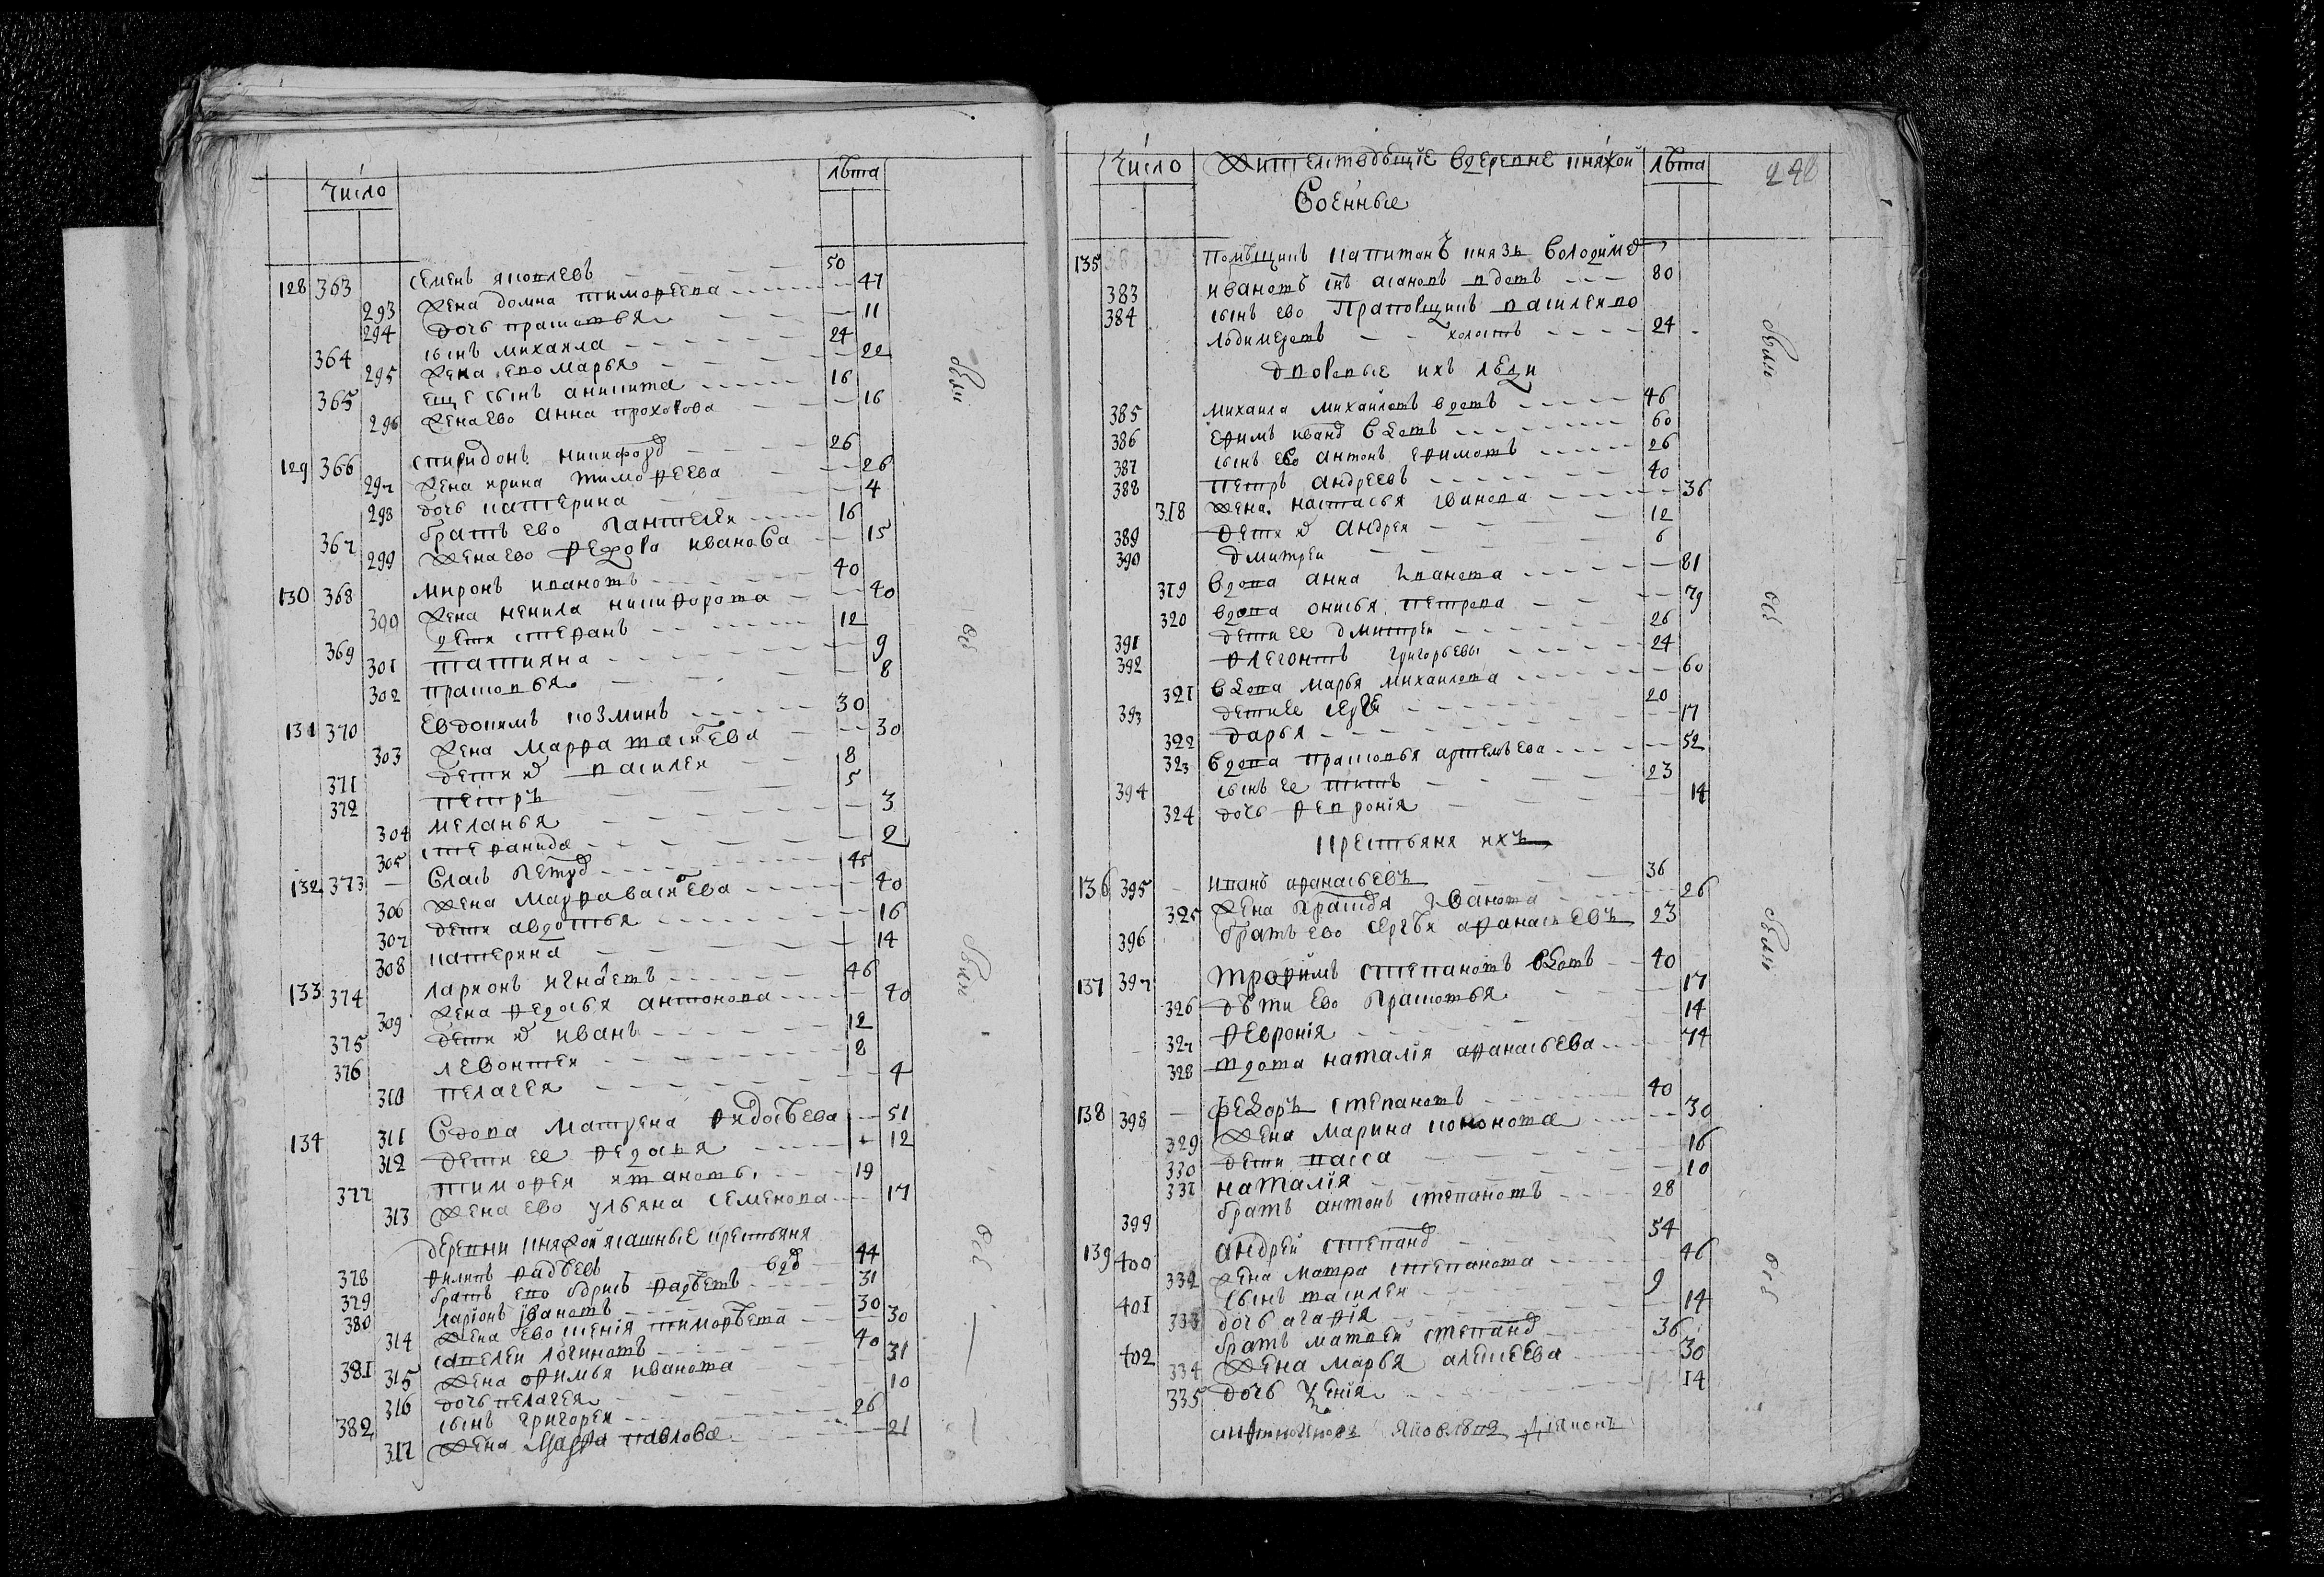 число лѣта
128 363 Семенъ яковлевъ 50
293 жена домна тимофеева 47
294 дочь прасковья 11
364 сынъ михаила 24
295 жена ево марья 22
365 еще сынъ аникита 16
296 жена ево анна прохорова 16
129 366 спиридонъ никифоро 26
297 жена ирина тимофеева 26
298 дочь катерина 4
367 братъ ево пантелей 16
299 жена ево федора иванова 15
130 368 миронъ ивановъ 40
300 жена ненила никифорова 40
369 дети стефанъ 12
301 татияна 9
302 прасковья 8
131 370 евдокимъ козминъ 30
303 жена марфа васильева 30
371 дети и василей 8
372 петръ 5
304 меланья 3
305 стефанида 2
132 373 власъ петро 45
306 жена марфа васильева 40
307 дети авдотья 16
308 катерина 14
133 374 ларионъ игнаевъ 46
309 жена федосья антонова 40
375 дети и иванъ 12
376 левонтей 8
310 пелагея 4
134 311 вдова матрена 51
312 дети ее федосья 12
377 тимофей ивановъ 19
313 жена ево ульяна семенова 17
деревни княжой ясашные крестьяня
378 филипъ фадѣевъ вдо 44
379 братъ ево борисъ фадѣевъ 31
380 ларионъ ивановъ 30
314 жена ево ксенія тимофѣева 30
381 савелей логиновъ 40
315 жена офимья иванова 31
316 дочь пелагея 10
382 сынъ григорей 26
317 жена марфа павлова 21
число жительствующіе вдеревне княжой лѣта
военные
135 помѣщикъ капитанъ князь володиме
383 ивановъ снъ асановъ вдовъ 80
384 сынъ ево прапорщикъ василей во
лодимеровъ холостъ 24
дворовые ихъ люди
385 михаила михайловъ вдовъ 46
386 ефимъ ивано вдовъ 60
387 сынъ ево антонъ ефимовъ 26
388 петръ андреевъ 40
318 жена настасья 36
389 дети и андрей 12
390 дмитрей 6
319 вдова анна иванова 81
320 вдова онисья петрова 79
391 дети ее дмитрей 26
392 флегонтъ григорьевы 24
321 вдова марья михайлова 60
393 дети ее серге 20
322 дарья 17
323 вдова прасковья артемьева 52
394 сынъ ее титъ 23
324 дочь февронія 14
крестьяня ихъ
136 395 иванъ афанасьевъ 36
325 жена иванова 26
396 братъ ево сергѣй афанасьевъ 23
137 397 трофимъ степановъ вдовъ 40
326 дѣти ево прасковья 17
327 февронія 14
328 вдова наталія афанасьева 74
138 398 федоръ степановъ 40
329 жена марина кононова 30
330 дети васса 16
331 наталія 10
399 братъ антонъ степановъ 28
139 400 андрей степано 54
332 жена матре степанова 46
401 сынъ василей 9
333 дочь агафія 14
402 братъ матвей степано 36
334 жена марья алексеева 30
335 дочь ксенія 14
яковлевъ діяконъ